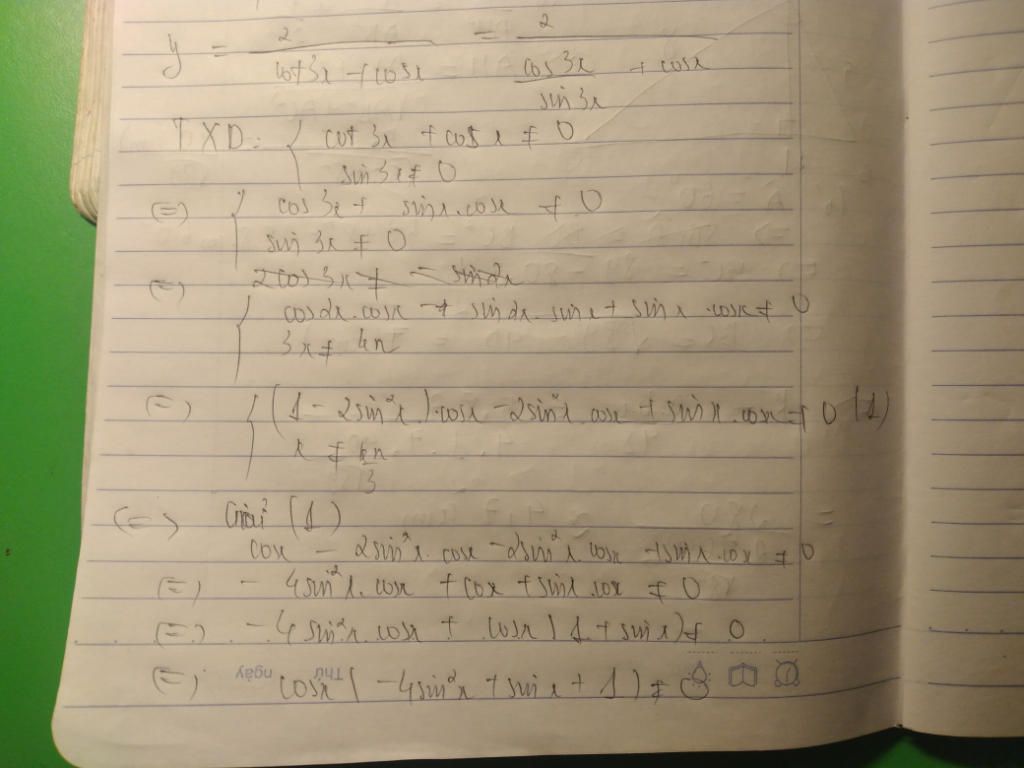 y = 2/(cot3x + cosx) = 2/(cos3x/sin3x + cosx)
TXD: { cot 3x + cos x ≠ 0
sin 3x ≠ 0
(=) { cos 3x + sinx.cosx ≠ 0
sin 3x ≠ 0
(=) 2cos3x ≠ - sin2x
{ cos2x.cosx - sin2x.sinx + sinx.cosx ≠ 0
3x ≠ kπ
(=) { (1 - 2sin²x).cosx - 2sin²x.cosx + sinx.cosx ≠ 0 (1)
x ≠ kπ/3
(=) Giải (1)
cosx - 2sin²x.cosx - 2sin²x.cosx + sinx.cox ≠ 0
(=) - 4sin²x.cosx + cox + sinx.cox ≠ 0
(=) - 4sin²x.cosx + cosx(1 + sinx) ≠ 0
(=) cosx ( -4sin²x + sinx + 1) ≠ 0
Thứ ngày